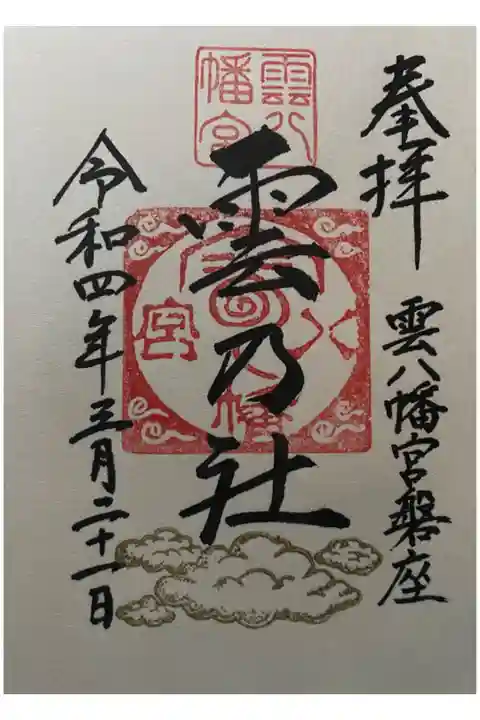 奉拝
雲八幡宮磐座
雲八
幡宮
雲乃社
八
宮
幡
令和四年三月二十一日